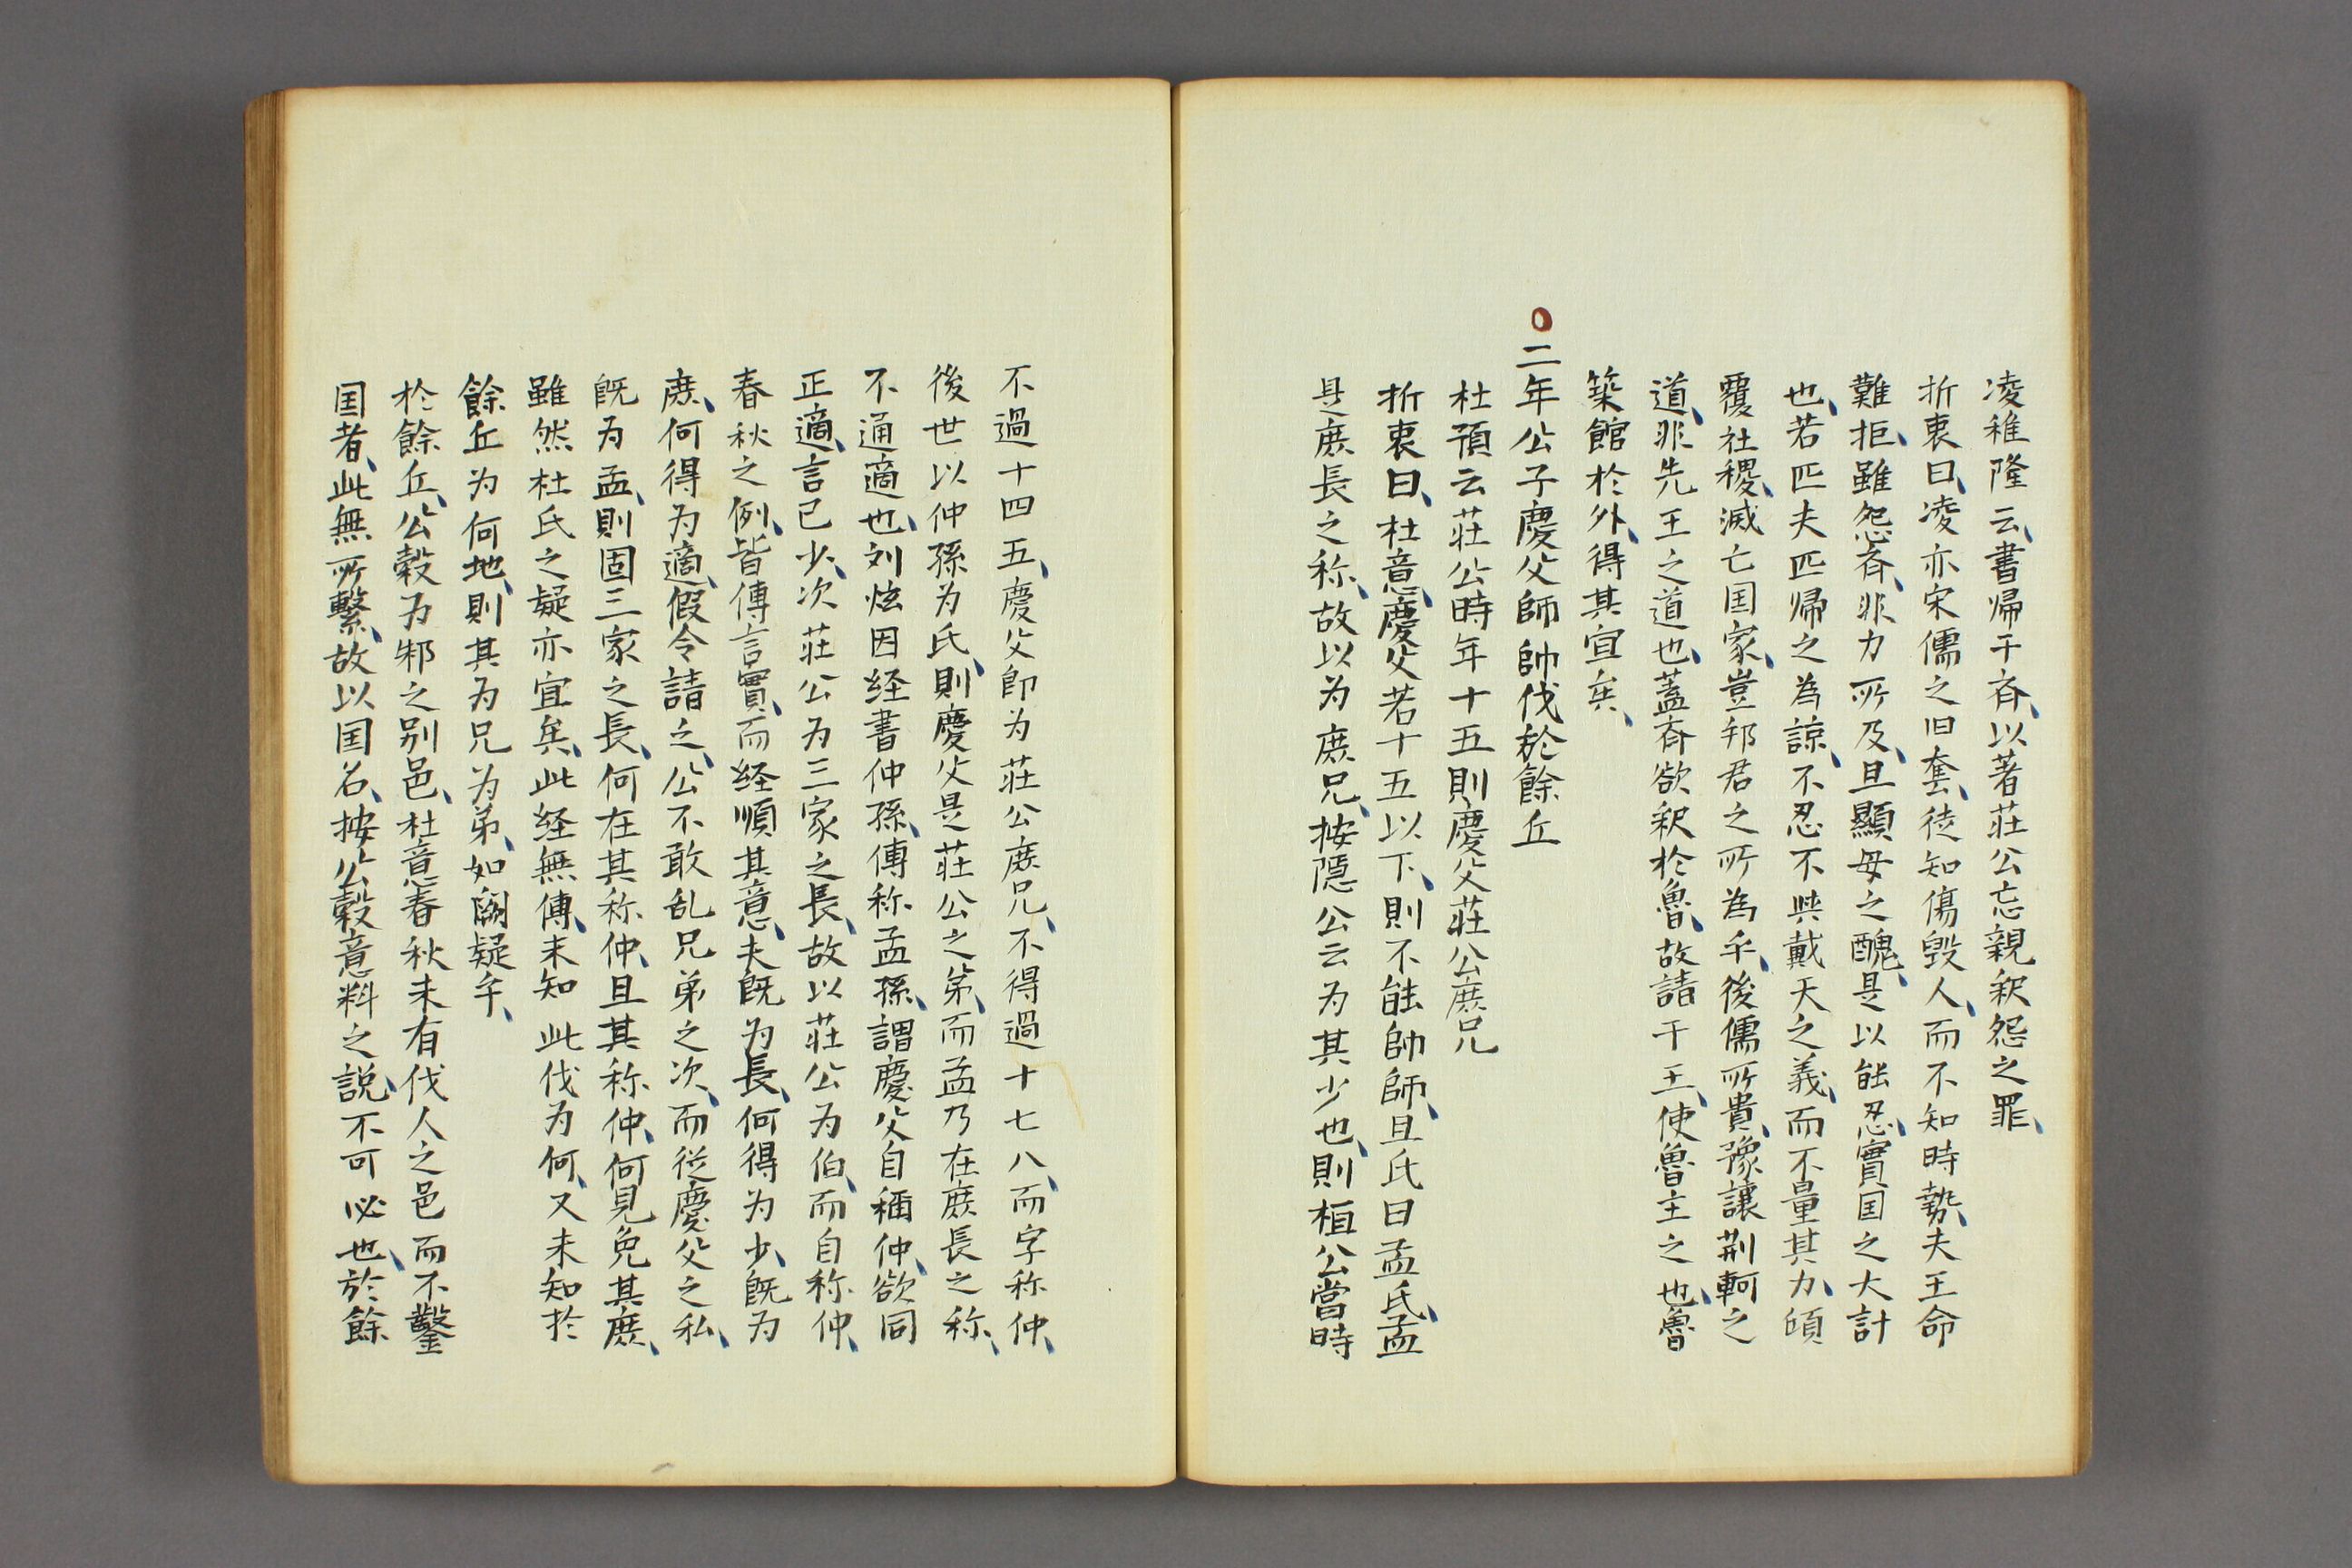 凌稚隆云、書帰于斉、以著荘公忘親釈怨之罪、
折衷曰、凌亦宋儒之旧套、徒知傷毀人、而不知時勢、夫王命
難拒、雖怨斉、非力所及、且顯母之醜、是以能忍、實国之大計
也、若匹夫匹帰之為諒、不忍不與戴天之義、而不量其力、頃
覆社稷、滅亡国家、豈邦君之所為乎、後儒所貴、豫讓荊軻之
道、非先王之道也、蓋斉欲釈於魯、故請于王、使魯主之也、魯
築館於外、得其宜矣、
○二年公子慶父師帥伐於餘丘
杜預云荘公時年十五則慶父荘公庶兄
折衷曰、杜意、慶父若十五以下、則不能帥師、且氏曰孟氏、孟
是庶長之称、故以为庶兄、按隠公云为其少也、則桓公當時
不過十四五、慶父即为荘公庶兄、不得過十七八、而字称仲、
後世以仲孫为氏、則慶父是荘公之弟、而孟乃在庶長之称、
不通適也、刘炫因経書仲孫、傳称孟孫、謂慶父自稱仲、欲同
正適、言已少、次荘公为三家之長、故以荘公为伯、而自称仲、
春秋之例、皆傳言實、而経順其意、夫既为長、何得为少、既为
庶、何得为適、假令請之、公不敢乱兄弟之次、而従慶父之私、
既为孟、則固三家之長、何在其称仲、且其称仲、何見免其庶、
雖然杜氏之疑亦宜矣、此経無傳、未知此伐为何、又未知於
餘丘为何地、則其为兄为弟、如闕疑乎、
於餘丘、公穀为邾之別邑、杜意春秋未有伐人之邑而不繫
国者、此無所繫、故以国名、按公穀意料之説、不可必也、於餘